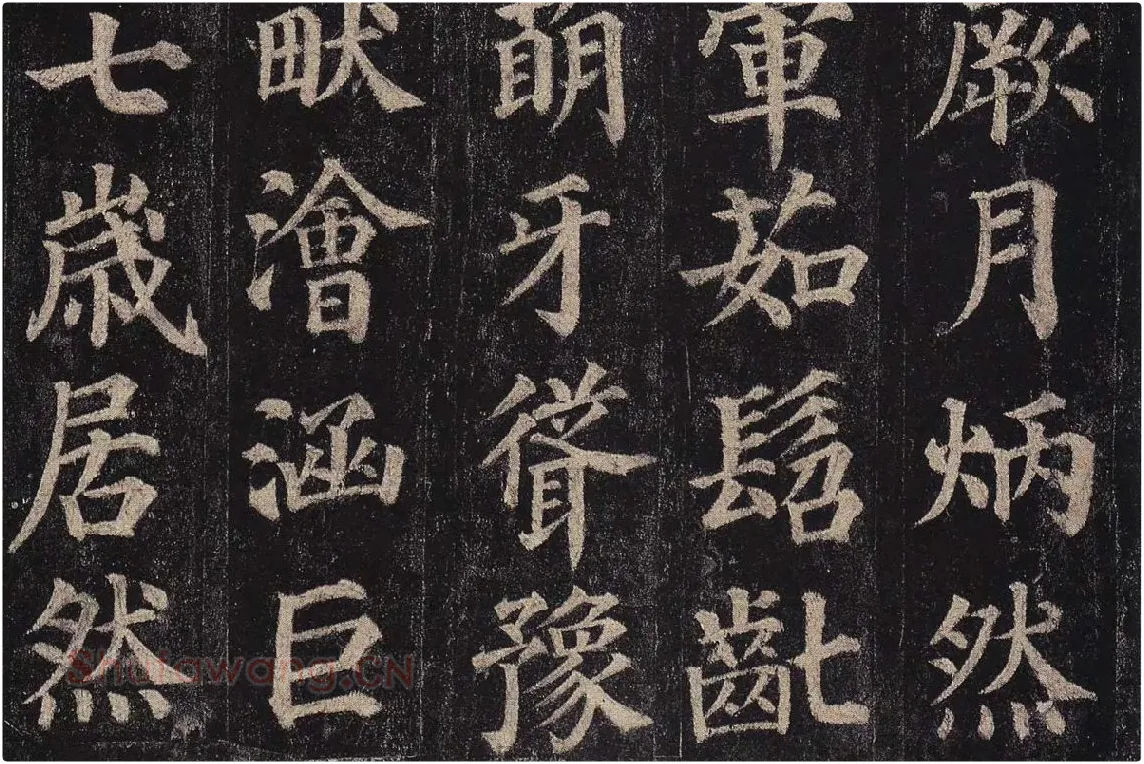 月炳然
軍茹髫齔
萌牙聳豫
畎澮涵巨
七歲居然
Shufawang.CN